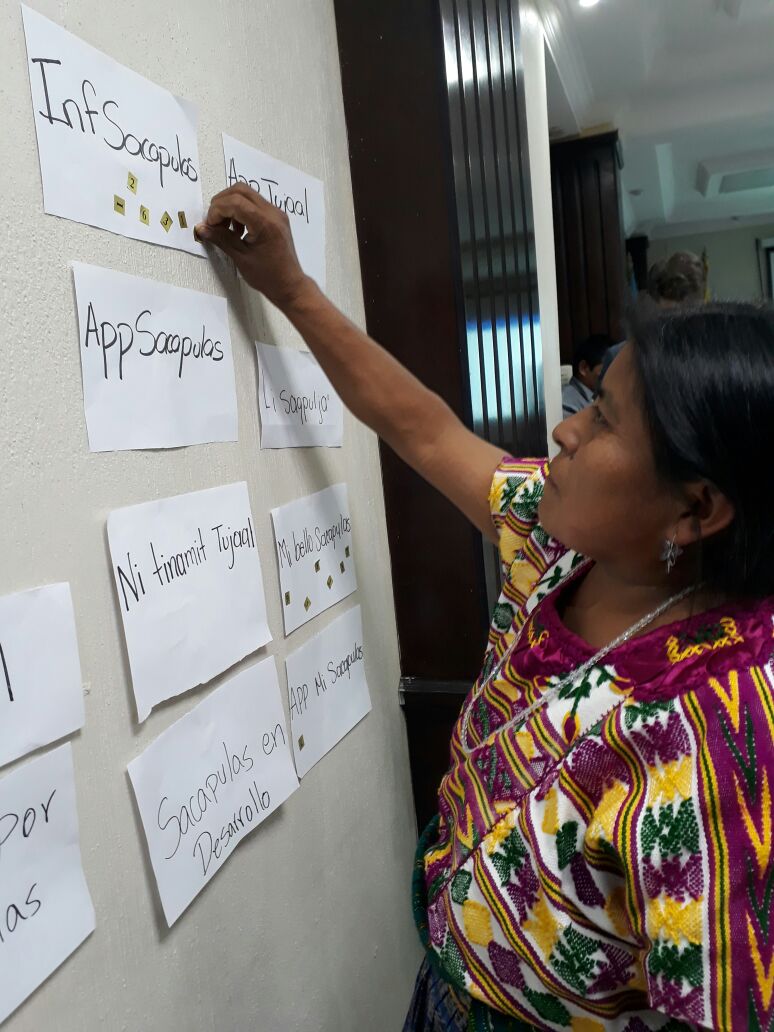 InfSacapulas
2
6 3 1
App Tujaal
App Sacapulas
Li Saqpulja'
Ni tinamit Tujaal
Mi bello Sacapulas
APP Mi Sacapulas
Sacapulas en
Desarrollo
Por
las